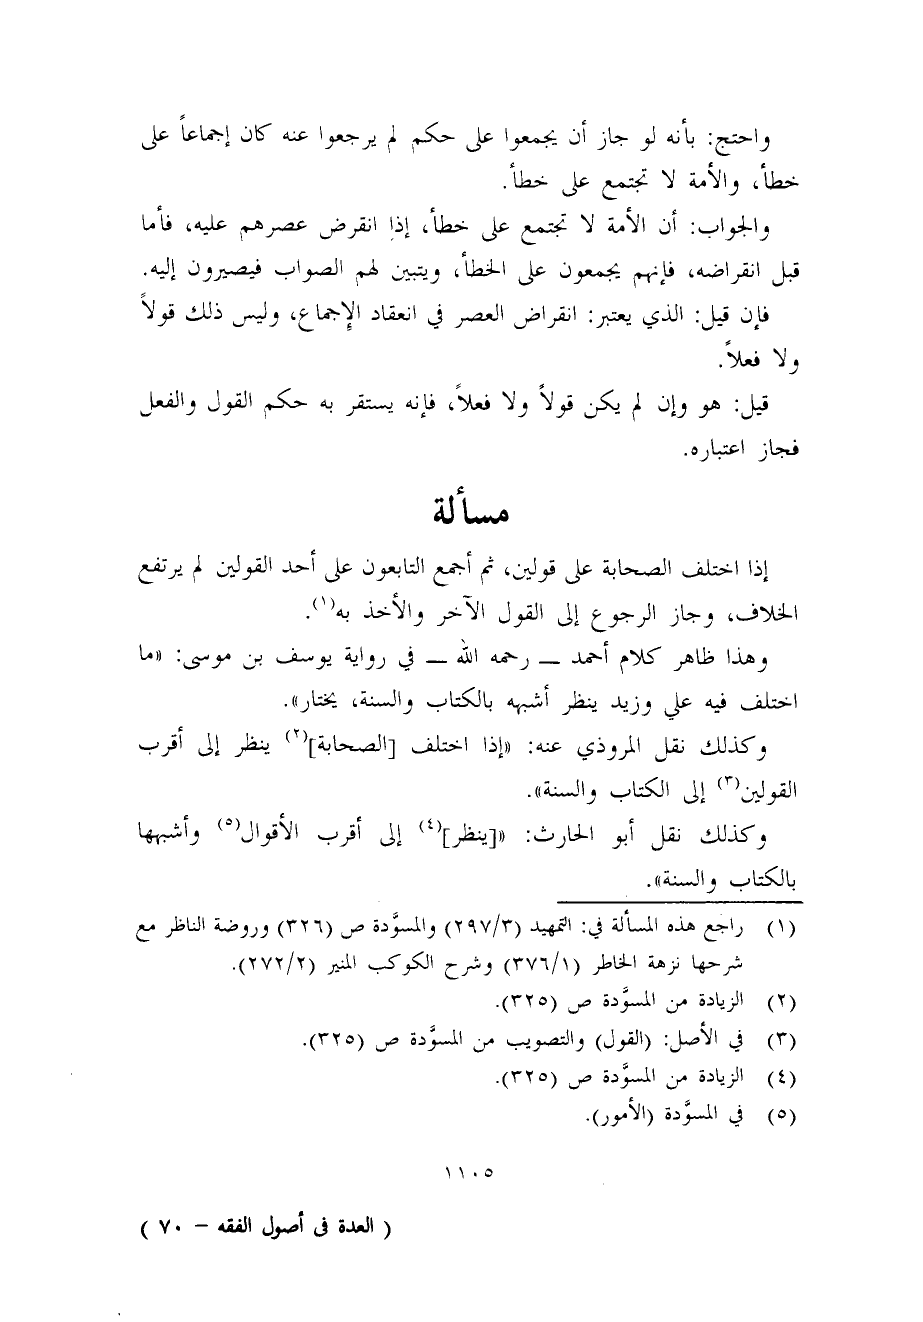 واحتج: بأنه لو جاز أن يجمعوا على حكم لم يرجعوا عنه كان إجماعاً على
خطأ، والأمة لا تجتمع على خطأ.
والجواب: أن الأمة لا تجتمع على خطأ، إذا انقرض عصرهم عليه، فأما
قبل انقراضه، فإنهم يجمعون على الخطأ، ويتبين لهم الصواب فيصيرون إليه.
فإن قيل: الذي يعتبر: انقراض العصر في انعقاد الإجماع، وليس ذلك قولاً
ولا فعلاً.
قيل: هو وإن لم يكن قولاً ولا فعلاً، فإنه يستقر به حكم القول والفعل
فجاز اعتباره.
مسألة
إذا اختلف الصحابة على قولين، ثم أجمع التابعون على أحد القولين لم يرتفع
الخلاف، وجاز الرجوع إلى القول الآخر والأخذ به(١).
وهذا ظاهر كلام أحمد ــ رحمه الله ــ في رواية يوسف بن موسى: «ما
اختلف فيه علي وزيد ينظر أشبهه بالكتاب والسنة، يختار».
وكذلك نقل المروذي عنه: «إذا اختلف [الصحابة](٢) ينظر إلى أقرب
القولين(٣) إلى الكتاب والسنة».
وكذلك نقل أبو الحارث: «[ينظر](٤) إلى أقرب الأقوال(٥) وأشبهها
بالكتاب والسنة».
(١) راجع هذه المسألة في: التمهيد (٢٩٧/٣) والمسوَّدة ص (٣٢٦) وروضة الناظر مع
شرحها نزهة الخاطر (٣٧٦/١) وشرح الكوكب المنير (٢٧٢/٢).
(٢) الزيادة من المسوَّدة ص (٣٢٥).
(٣) في الأصل: (القول) والتصويب من المسوَّدة ص (٣٢٥).
(٤) الزيادة من المسوَّدة ص (٣٢٥).
(٥) في المسوَّدة (الأمور).
١١٠٥
( العدة في أصول الفقه – ٧٠ )